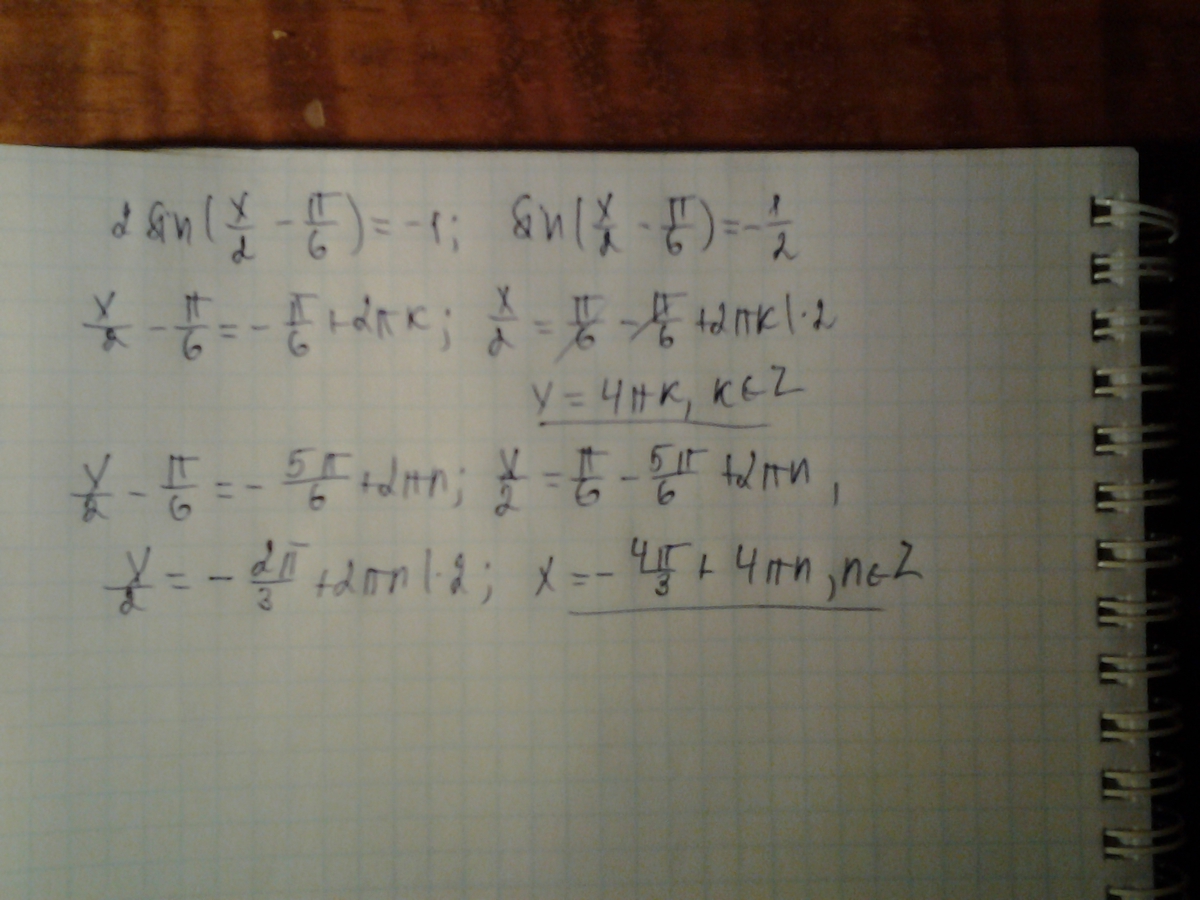 2 sin(x/2 - π/6) = -1; sin(x/2 - π/6) = -1/2
x/2 - π/6 = -π/6 + 2πk; x/2 = π/6 - π/6 + 2πk |·2
x = 4πk, k∈Z
x/2 - π/6 = -5π/6 + 2πn; x/2 = π/6 - 5π/6 + 2πn,
x/2 = -2π/3 + 2πn |·2; x = -4π/3 + 4πn, n∈Z